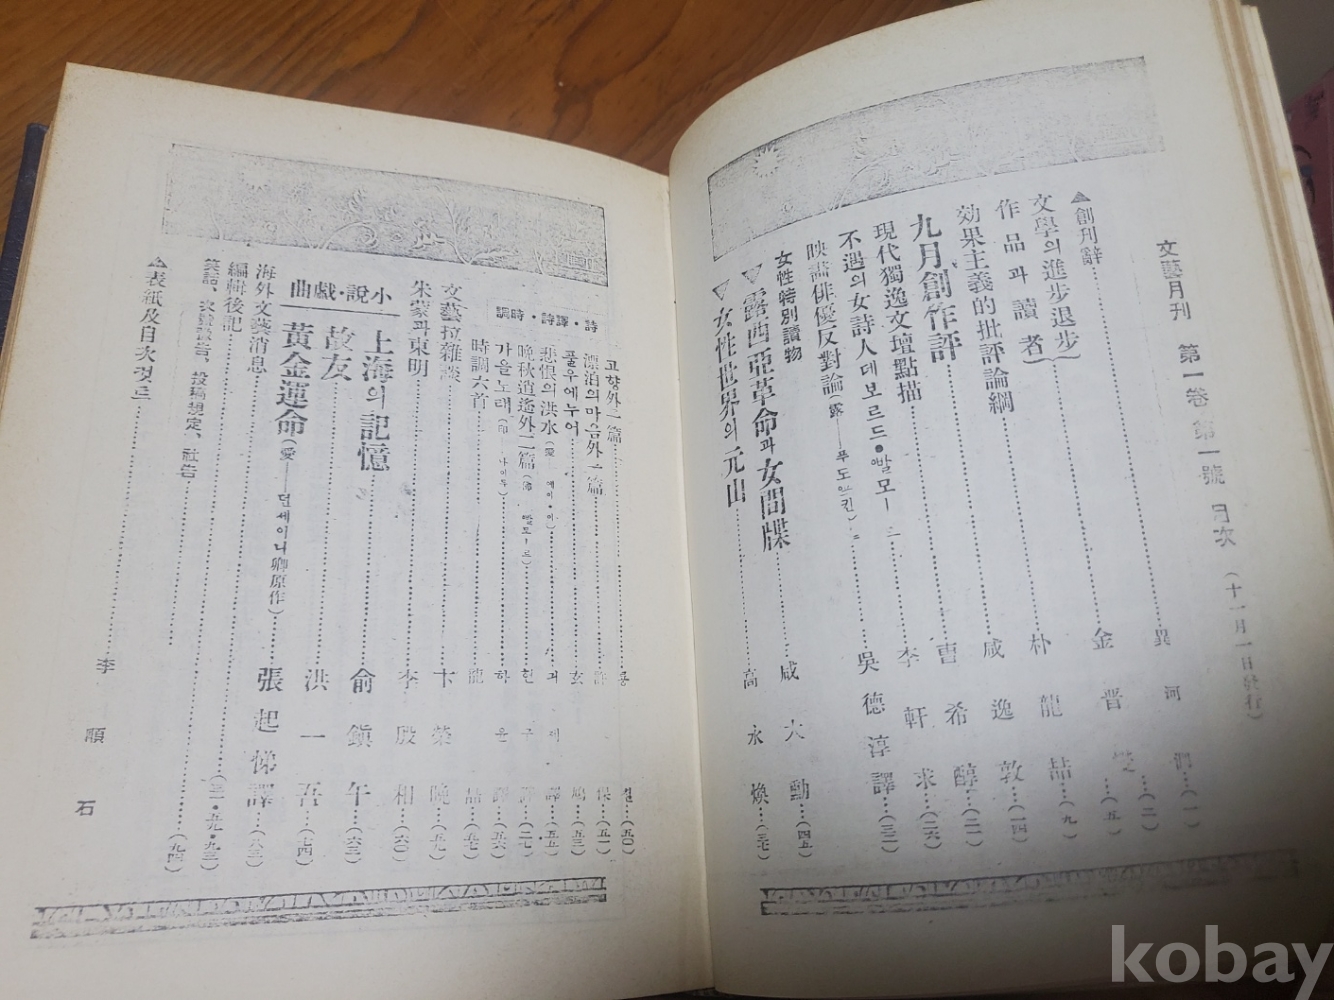 文藝月刊 第一卷 第一號 目次 (十一月一日發行)
▲創刊辭 異河潤 (一)
文學의進步退步 金晋燮 (二)
作品과讀者 (五)
效果主義的批評論綱 朴龍喆 (九)
九月創作評 咸逸敦 (一四)
現代獨逸文壇點描 曹希醇 (二一)
不遇의女詩人데보르드•빨모ー드 李軒求 (二六)
映畵俳優反對論(露——푸도앤킨) 吳德淳譯 (三二)
女性特別讀物
▽露西亞革命과女間牒 咸大勳 (四五)
▽女性世界의元山 高永煥 (三七)
詩・譯詩・時調
고향外二篇 (五〇)
漂泊의마음外一篇 許保 (五一)
풀우에누어 玄鳩 (五三)
悲恨의洪水 譯 (五五)
晩秋逍遙外二篇
가을노래 하윤
時調六首 龍喆
文藝拉雜談 卞榮晩
朱蒙과東明 李殷相 (六〇)
小說・戱曲
上海의記憶 兪鎭午 (六三)
故友 洪一吾 (七四)
黃金運命(愛——던세이니卿原作) 張起悌譯 (八三)
海外文藝消息
編輯後記
笑話、次號豫告、投稿規定、社告
▲表紙及目次컷트 李順石
kobay